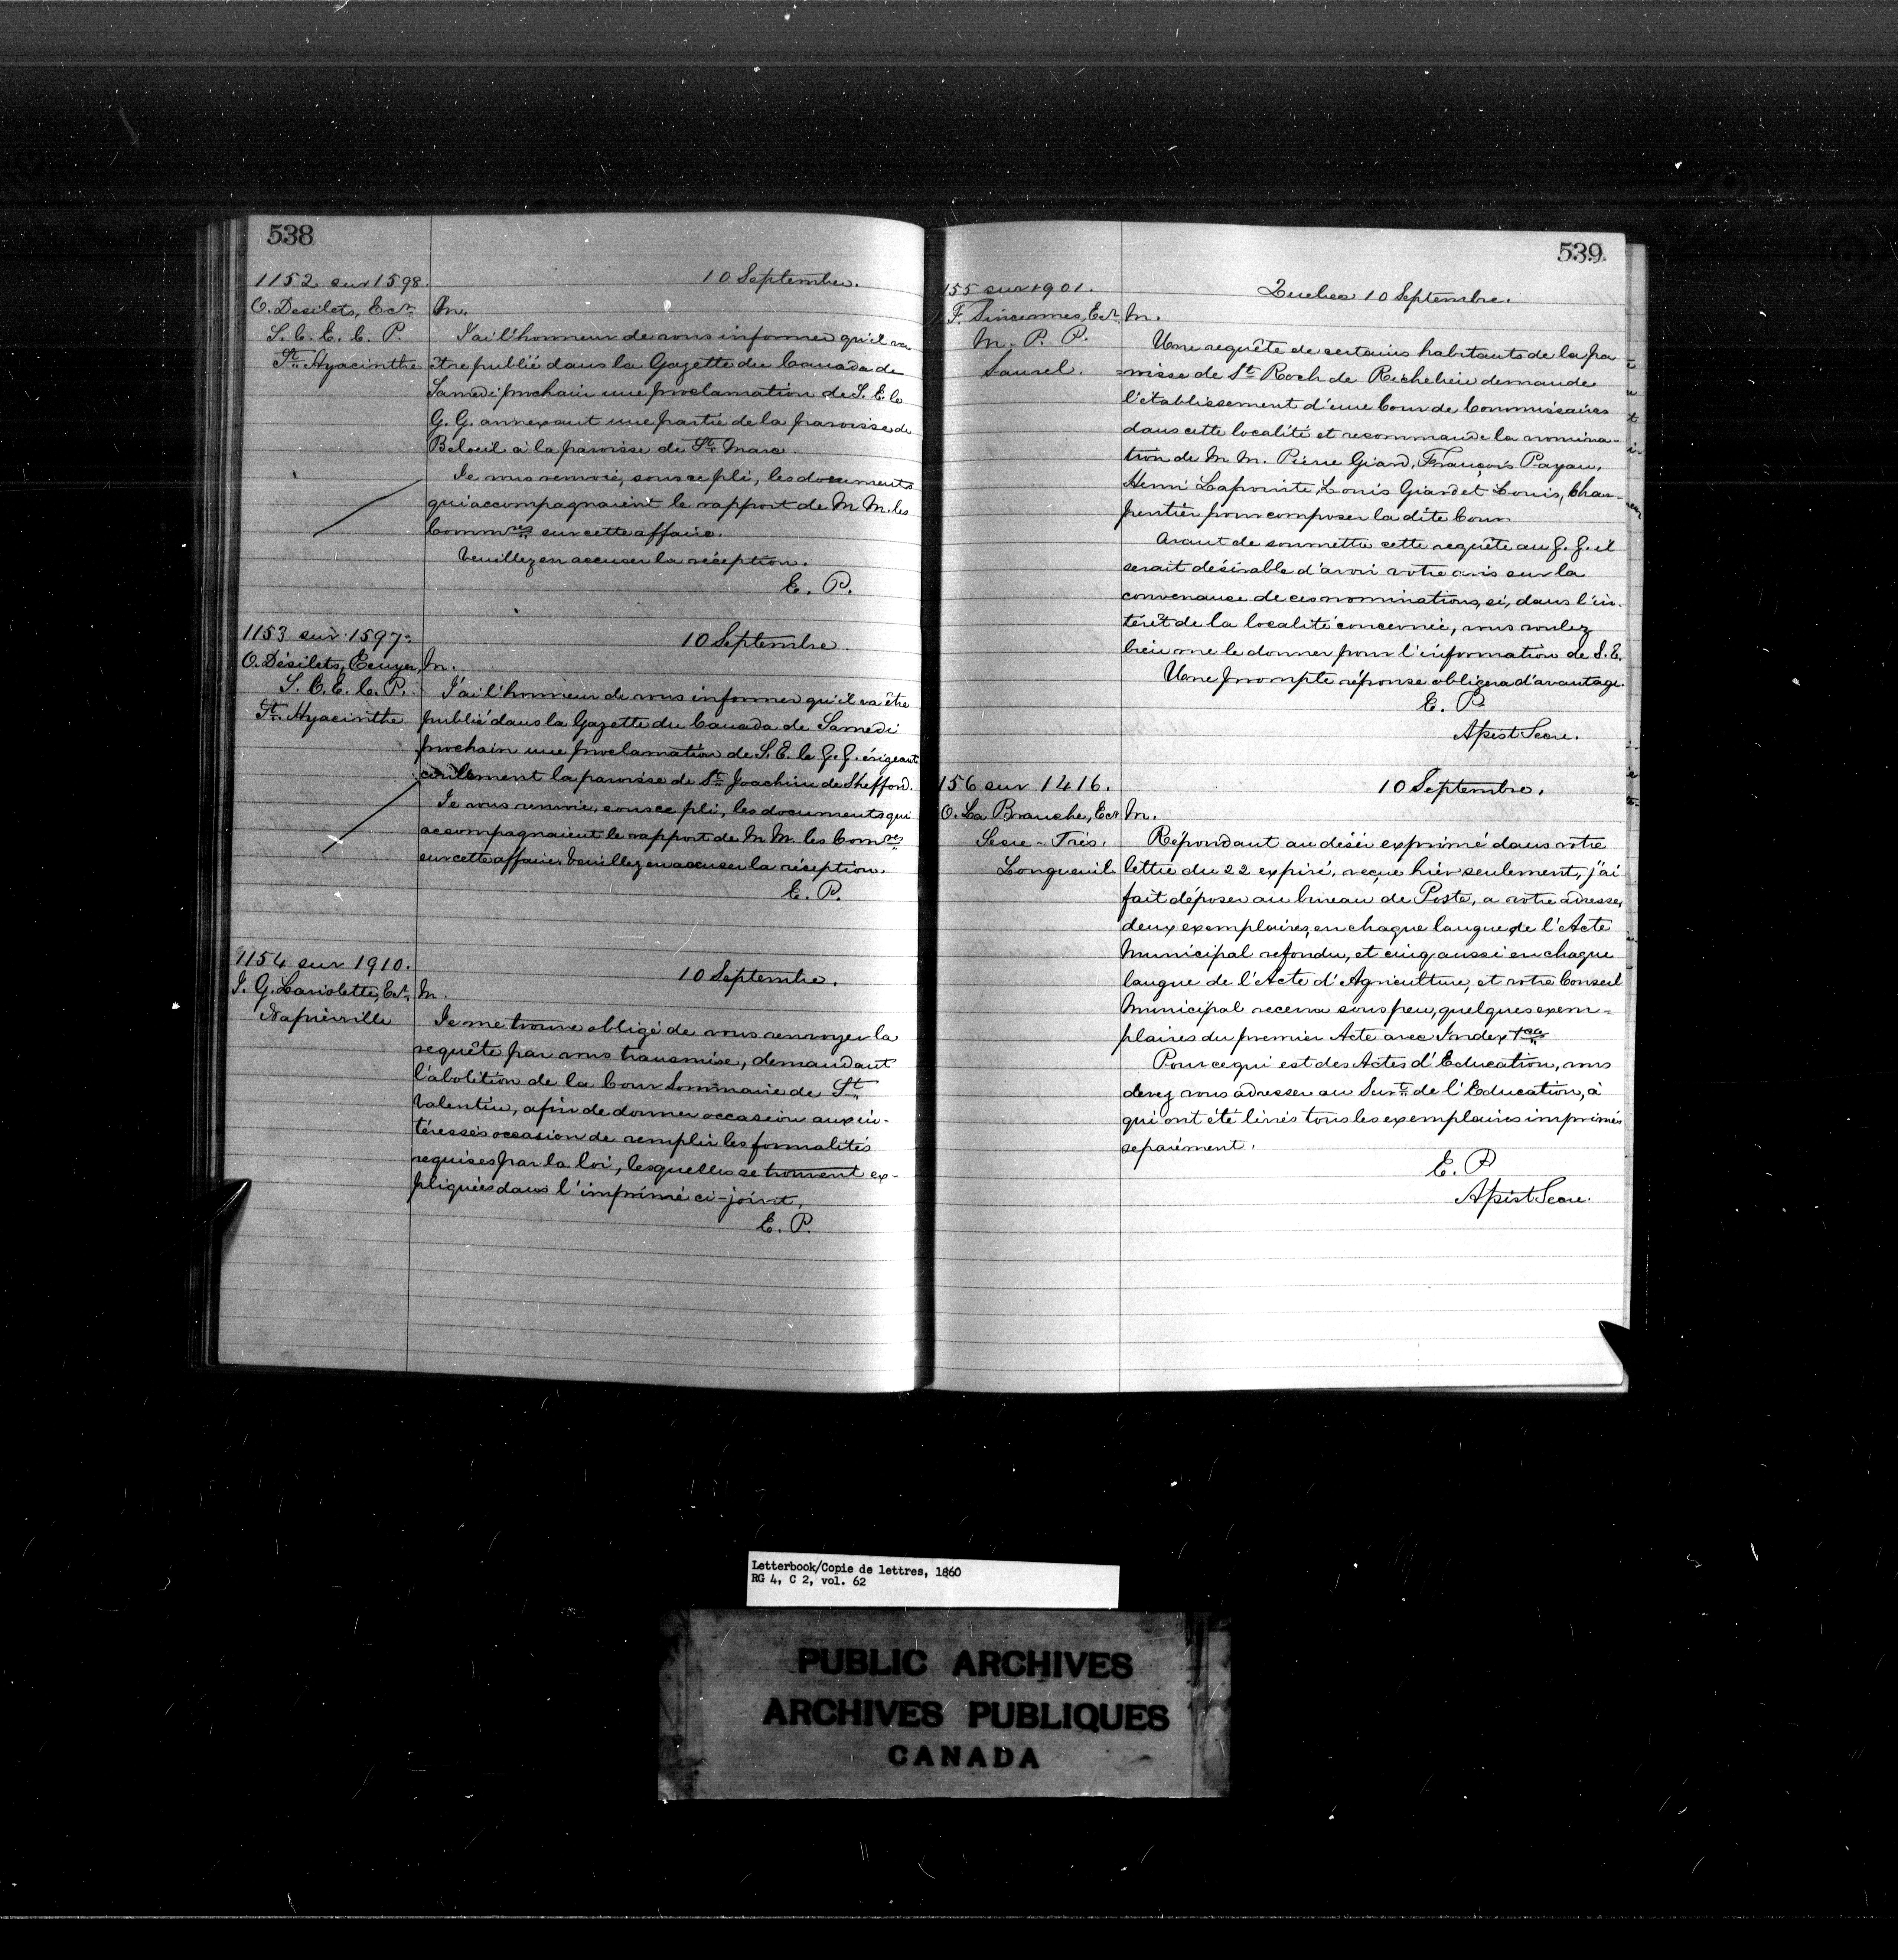 538
1152 sur 1598.
O. Desilets, Ecr.
S. C. E. C. P.
St. Hyacinthe
10 Septembre.
M.
J'ai l'honneur de vous informer qu'il va
être publié dans la Gazette du Canada de
Samedi prochain une proclamation de S. E. le
G. G. annexant une partie de la paroisse de
Beloeil à la paroisse de St. Marc.
Je vous renvoie, sous ce pli, les documents
qui accompagnaient le rapport de M M. les
Commres sur cette affaire.
Veuillez en accuser la réception.
E. P.
1153 sur 1597.
O. Désilets, Ecuyer,
S. C. E. C. P.
St. Hyacinthe
10 Septembre.
M.
J'ai l'honneur de vous informer qu'il va être
publié dans la Gazette du Canada de Samedi
prochain une proclamation de S. E. le G. G. érigeant
civilement la paroisse de St. Joachim de Shefford.
Je vous renvoie, sous ce pli, les documents qui
accompagnaient le rapport de M M. les Comres
sur cette affaire. Veuillez en accuser la réception.
E. P.
1154 sur 1910.
J. G. Lariolette, Ecr.
Napierville
10 Septembre.
M.
Je me trouve obligé de vous renvoyer la
requête par vous transmise, demandant
l'abolition de la Cour Sommaire de St.
Valentin, afin de donner occasion aux in-
téressés occasion de remplir les formalités
requises par la loi, lesquelles se trouvent ex-
pliquées dans l'imprimé ci-joint.
E. P.
539
155 sur 1901.
F. Sincennes, Ecr.
M. P. P.
Saurel.
Quebec 10 Septembre.
M.
Une requête de certains habitants de la pa
=roisse de St. Roch de Richelieu demande
l'établissement d'une Cour de Commissaires
dans cette localité et recommande la nomina-
tion de M M. Pierre Giard, François Payan,
Henri Lapointe, Louis Giard et Louis, Char-
pentier pour composer la dite Cour.
Avant de soumettre cette requête au G. G. il
serait désirable d'avoir votre avis sur la
convenance de ces nominations, si, dans l'in-
térêt de la localité concernée, vous voulez
bien me le donner pour l'information de S. E.
Une prompte réponse obligera d'avantage.
E. P
Assist Secre.
156 sur 1416.
O. La Branche, Ecr
Secre-Trés.
Longueuil.
10 Septembre.
M.
Répondant au désir exprimé dans votre
lettre du 22 expiré, reçue hier seulement, j'ai
fait déposer au bureau de Poste, a votre adresse,
deux exemplaires, en chaque langue, de l'Acte
Municipal refondu, et cinq aussi en chaque
langue de l'Acte d'Agriculture, et votre Conseil
Municipal recevra sous peu, quelques exem=
plaires du premier Acte avec Index
Pour ce qui est des Actes d'Education, vous
devez vous adresser au Surt. de l'Education, à
qui ont été livrés tous les exemplaires imprimés
separément.
E. P
Assist Secre.
Letterbook/Copie de lettres, 1860
RG 4, C 2, vol. 62
PUBLIC ARCHIVES
ARCHIVES PUBLIQUES
CANADA